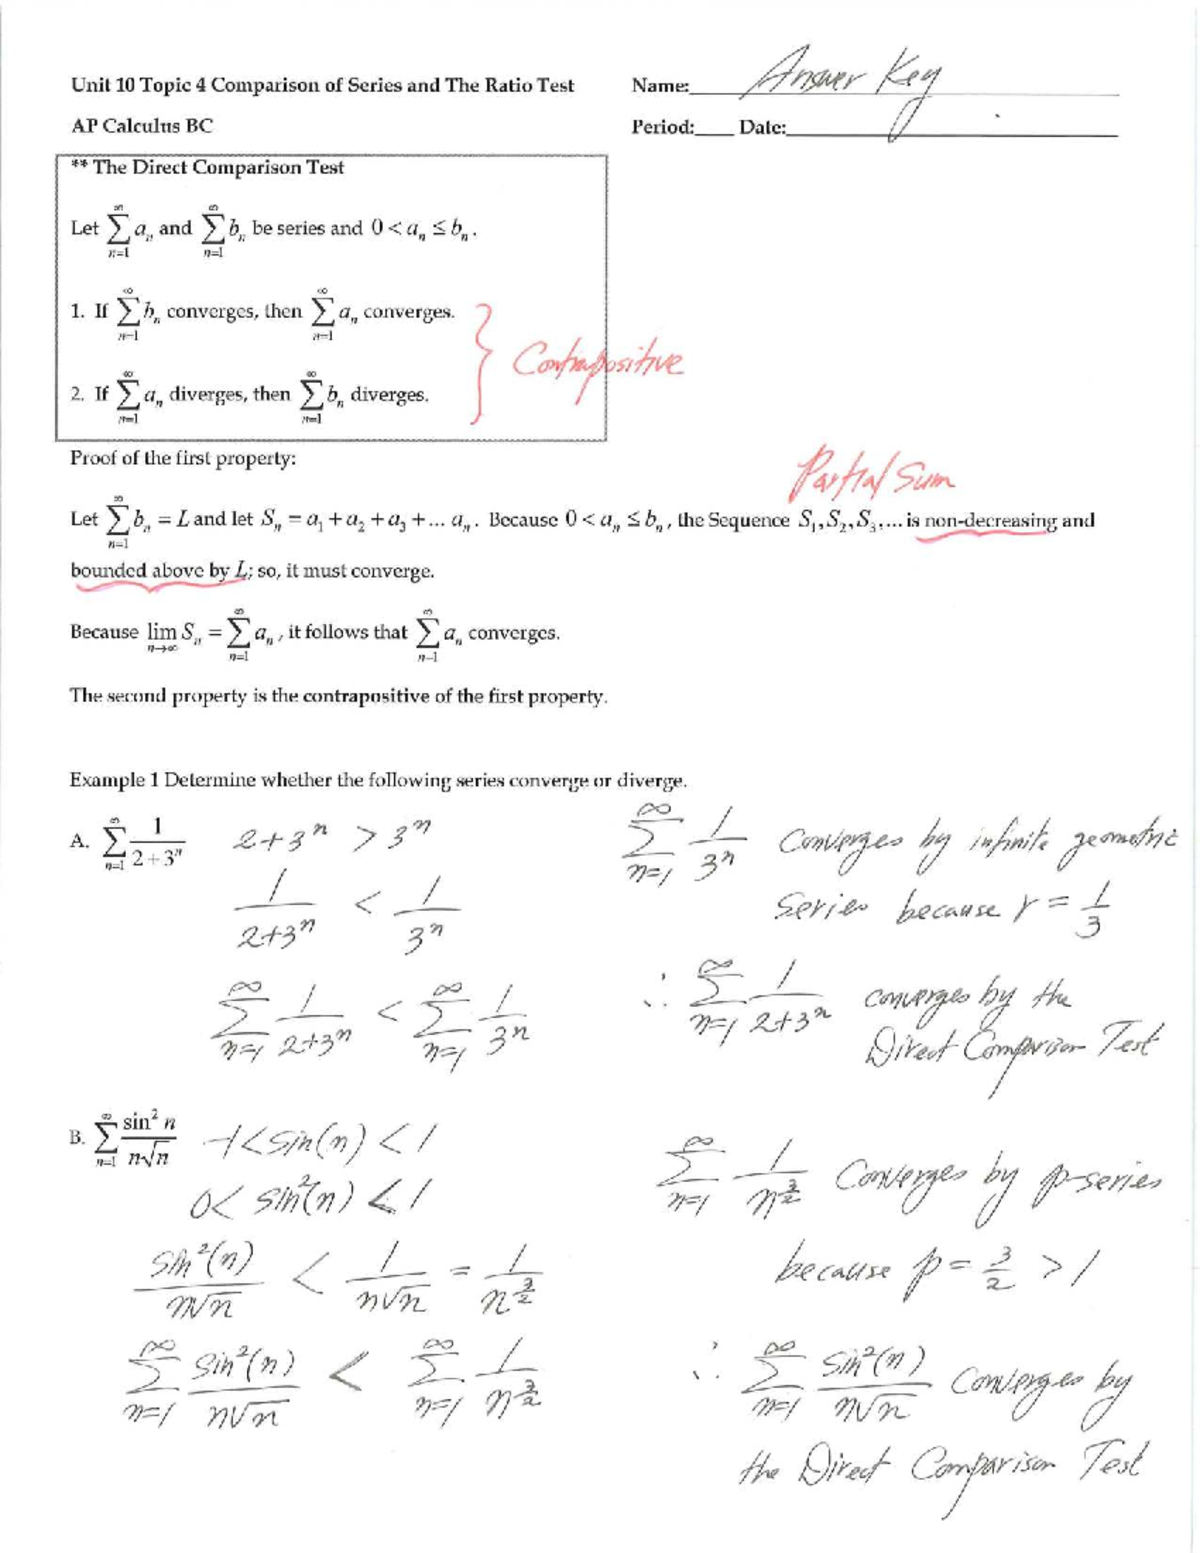 Unit 10 Topic 4 Comparison of Series and The Ratio Test Name: Answer Key
AP Calculus BC Period:____ Date:
** The Direct Comparison Test
Let ∑_{n=1}^{∞} a_n and ∑_{n=1}^{∞} b_n be series and 0 < a_n ≤ b_n.
1. If ∑_{n=1}^{∞} b_n converges, then ∑_{n=1}^{∞} a_n converges.
Contrapositive
2. If ∑_{n=1}^{∞} a_n diverges, then ∑_{n=1}^{∞} b_n diverges.
Proof of the first property:
Partial Sum
Let ∑_{n=1}^{∞} b_n = L and let S_n = a_1 + a_2 + a_3 + ... a_n. Because 0 < a_n ≤ b_n, the Sequence S_1, S_2, S_3, ... is non-decreasing and
bounded above by L; so, it must converge.
Because lim_{n→∞} S_n = ∑_{n=1}^{∞} a_n, it follows that ∑_{n=1}^{∞} a_n converges.
The second property is the contrapositive of the first property.
Example 1 Determine whether the following series converge or diverge.
A. ∑_{n=1}^{∞} 1/(2+3^n)
2+3^n > 3^n
1/(2+3^n) < 1/3^n
∑_{n=1}^{∞} 1/(2+3^n) < ∑_{n=1}^{∞} 1/3^n
∑_{n=1}^{∞} 1/3^n Converges by infinite geometric
series because r = 1/3
∴ ∑_{n=1}^{∞} 1/(2+3^n) converges by the
Direct Comparison Test
B. ∑_{n=1}^{∞} sin² n/(n√n)
-1 < sin(n) < 1
0 < sin²(n) < 1
sin²(n)/(n√n) < 1/(n√n) = 1/n^{3/2}
∑_{n=1}^{∞} sin²(n)/(n√n) < ∑_{n=1}^{∞} 1/n^{3/2}
∑_{n=1}^{∞} 1/n^{3/2} Converges by p-series
because p = 3/2 > 1
∴ ∑_{n=1}^{∞} sin²(n)/(n√n) Converges by
the Direct Comparison Test